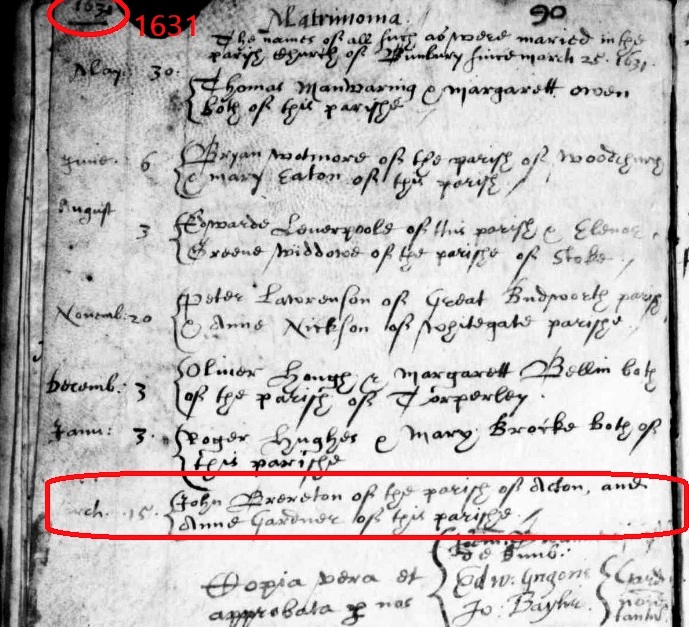 1631 Matrimonia. 90
1631
The names of all such as were maried in the
parish Church of Bunbury since march 25. 1631.
May: 30. Thomas Manwaring & Margarett owen
both of this parishe
June. 6 Bryan wotmore of the parish of woodchurch
& mary Eaton of this parish
August
3 Edwarde Leuerpoole of this parish & Elenor
Greene widdowe of the parishe of Stoke.
Nouemb: 20 Peter Lawrenson of Great Budworth parish
& Anne Nickson of whitegate parishe
Decemb: 3 Oliuer Hough & Margarett Bellin both
of the parish of Torperley.
Janu: 3. Roger Hughes & Mary Brocke both of
this parishe
rch. 15. John Brereton of the parish of Acton, and
Anne Gardner of this parishe.
de Bunb:
Copia vera et Edw:
approbata p nos Jo: